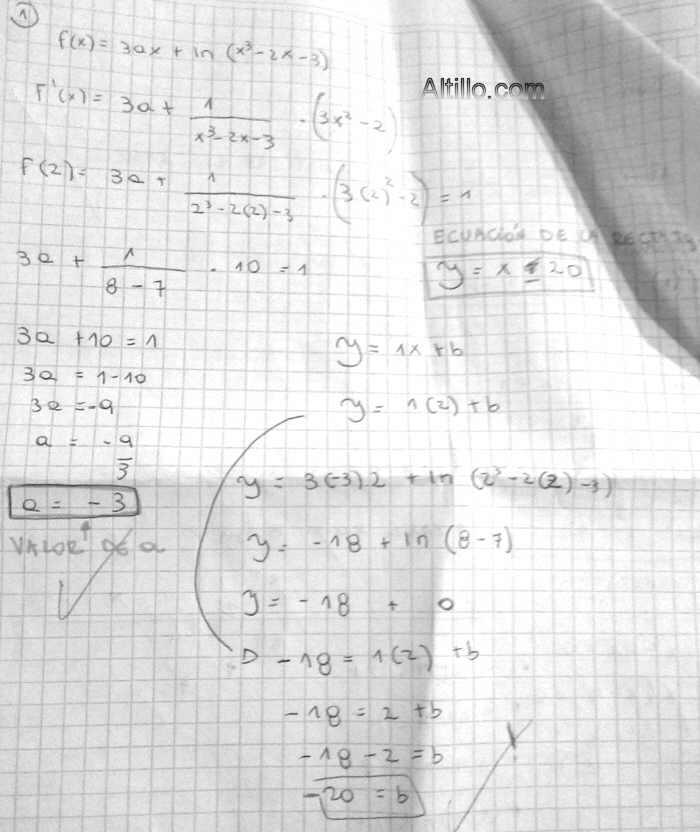 1)
f(x) = 3ax + ln (x³-2x-3)
Altillo.com
F'(x) = 3a + 1/(x³-2x-3) · (3x²-2)
F(2) = 3a + 1/(2³-2(2)-3) · (3(2)²-2) = 1
3a + 1/(8-7) · 10 = 1
3a + 10 = 1
3a = 1-10
3a = -9
a = -9/3
a = -3
VALOR DE a
ECUACIÓN DE LA RECTA
y = x - 20
y = 1x + b
y = 1(2) + b
y = 3(-3)2 + ln (2³-2(2)-3)
y = -18 + ln (8-7)
y = -18 + 0
-18 = 1(2) + b
-18 = 2 + b
-18 - 2 = b
-20 = b